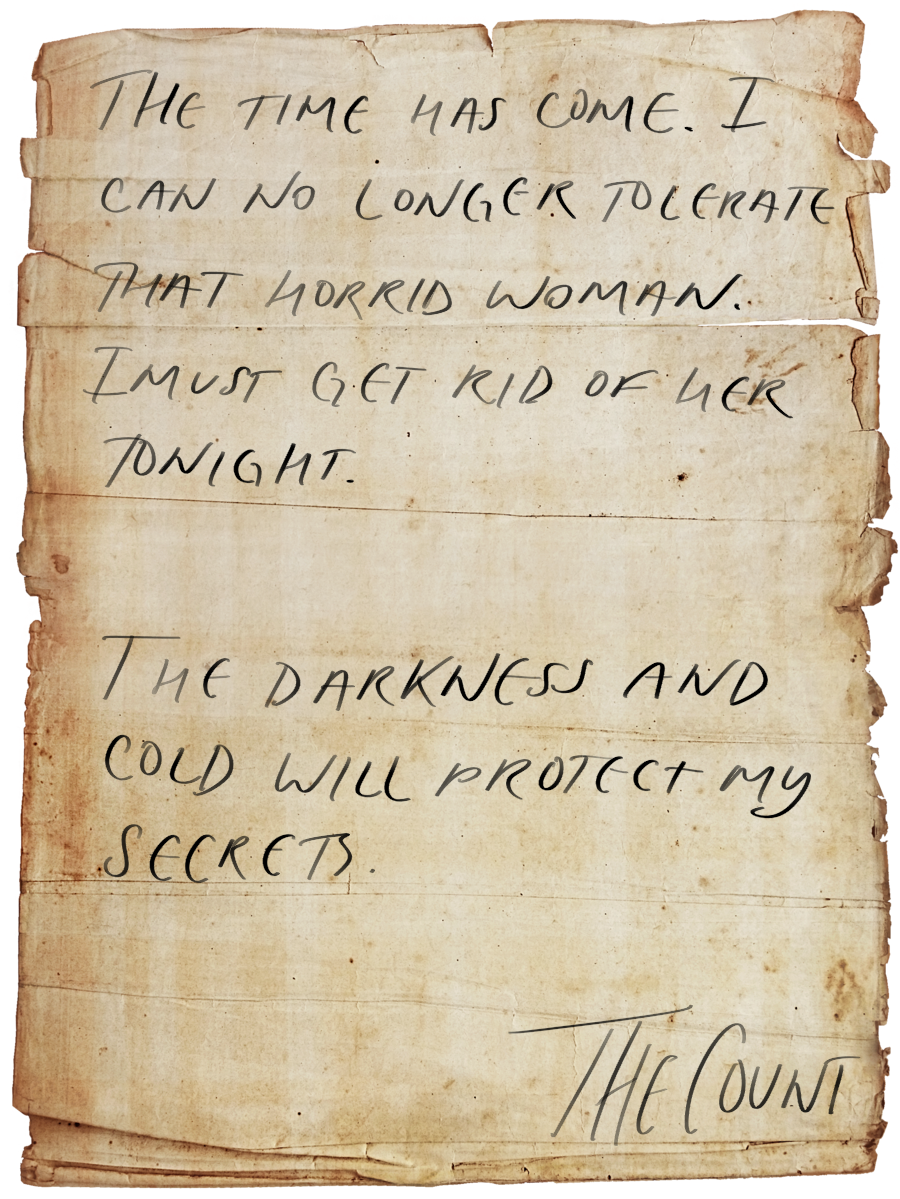 THE TIME HAS COME. I
CAN NO LONGER TOLERATE
THAT HORRID WOMAN.
I MUST GET RID OF HER
TONIGHT.
THE DARKNESS AND
COLD WILL PROTECT MY
SECRETS.
THE COUNT